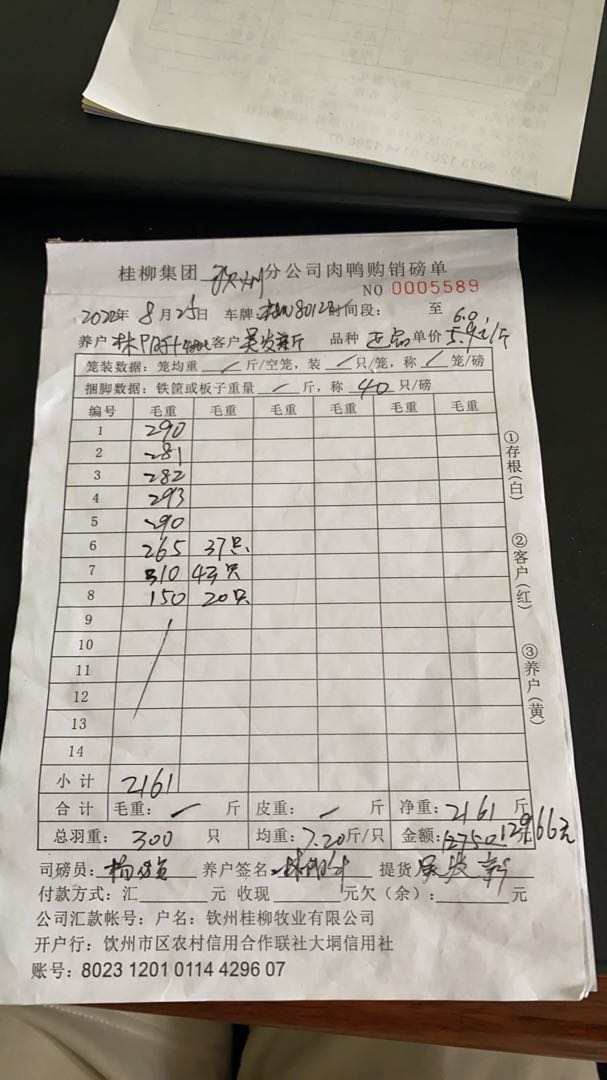 桂柳集团 钦州 分公司肉鸭购销磅单
NO 0005589
2022年 8月25日 车牌: 时间段: 至
6.0
养户 客户 吴发新 品种 单价 5.9元/斤
笼装数据: 笼均重 / 斤/空笼, 装 / 只/笼, 称 / 笼/磅
捆脚数据: 铁筐或板子重量 / 斤, 称 40 只/磅
编号 毛重 毛重 毛重 毛重 毛重 毛重
1 290
2 281
3 282
4 293
5 290
6 265 37只
7 310 43只
8 150 20只
9
10
11
12
13
14
小计 2161
合计 毛重: / 斤 皮重: / 斤 净重: 2161 斤
总羽重: 300 只 均重: 7.20 斤/只 金额: 12750 12966元
司磅员: 养户签名 提货 吴发新
付款方式: 汇 元 收现 元欠(余): 元
公司汇款帐号: 户名: 钦州桂柳牧业有限公司
开户行: 钦州市区农村信用合作联社大垌信用社
账号: 8023 1201 0114 4296 07
①存根(白)
②客户(红)
③养户(黄)